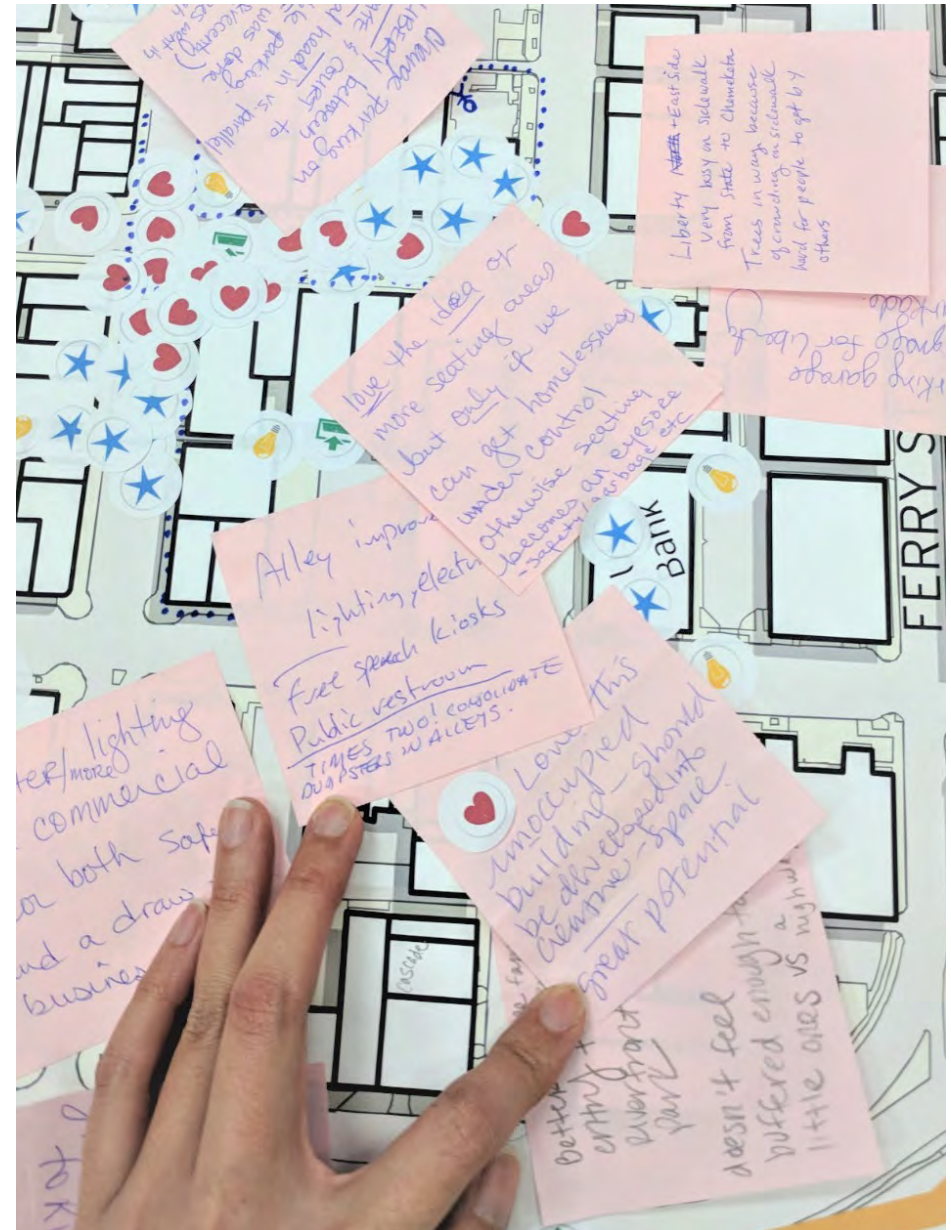 change Parking on
between
head in vs. parallel
parking
was done
recently
Liberty + East Side
very busy on sidewalk
from State to Chemeketa
Trees in way because
of crowding on sidewalk
hard for people to get by
others
rking garage
gnage for Libert
love the idea of
more seating areas
but only if we
can get homelessness
under control
otherwise seating
becomes an eyesore
- safety/garbage etc
Bank
FERRY S
Alley improve
lighting, electri
Free speech kiosks
Public restroom
TIMES TWO! CONSOLIDATE
DUMPSTERS IN ALLEYS.
ter/more lighting
commercial
or both safe
and a draw
busines
Love this
unoccupied
building - should
be developed into
creative-space
great potential
cascade
Better
entry
riverfront
park
doesn't feel
buffered enough
little ones vs highw